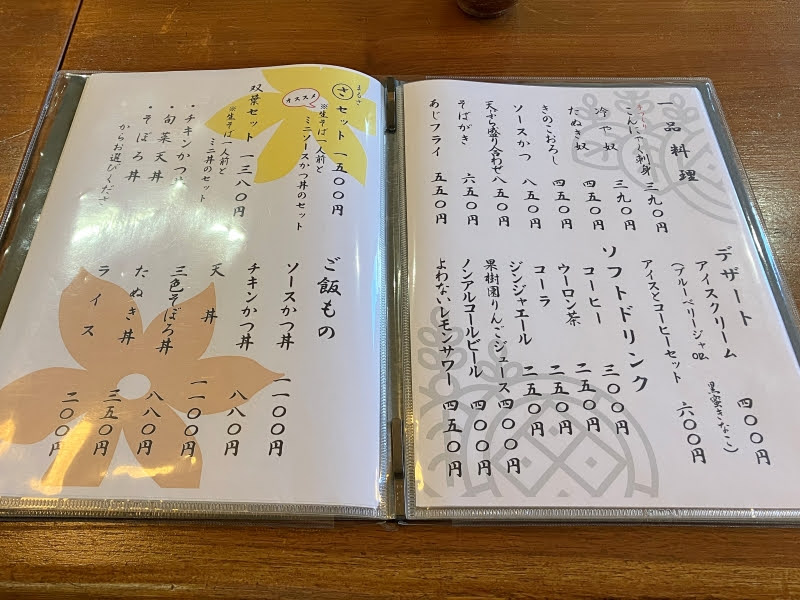 一品料理
こんにゃく刺身 三九〇円
冷や奴 三九〇円
たぬき奴 四五〇円
きのこおろし 四五〇円
ソースかつ 八五〇円
天ぷら盛り合わせ 八五〇円
そばがき 六五〇円
あじフライ 五五〇円
デザート
アイスクリーム 四〇〇円
(ブルーベリージャム or 黒蜜きなこ)
アイスとコーヒーセット 六〇〇円
ソフトドリンク
コーヒー 三〇〇円
ウーロン茶 二五〇円
コーラ 二五〇円
ジンジャエール 二五〇円
果樹園りんごジュース 四〇〇円
ノンアルコールビール 四〇〇円
よわないレモンサワー 四五〇円
まるさ
さセット 一五〇〇円
オススメ
※生そば一人前と
ミニソースかつ丼のセット
双葉セット 一三八〇円
※生そば一人前と
ミニ丼のセット
・チキンかつ丼
・旬菜天丼
・そぼろ丼
からお選びくださ
ご飯もの
ソースかつ丼 一一〇〇円
チキンかつ丼 八八〇円
天丼 一一〇〇円
三色そぼろ丼 八八〇円
たぬき丼 三五〇円
ライス 二〇〇円